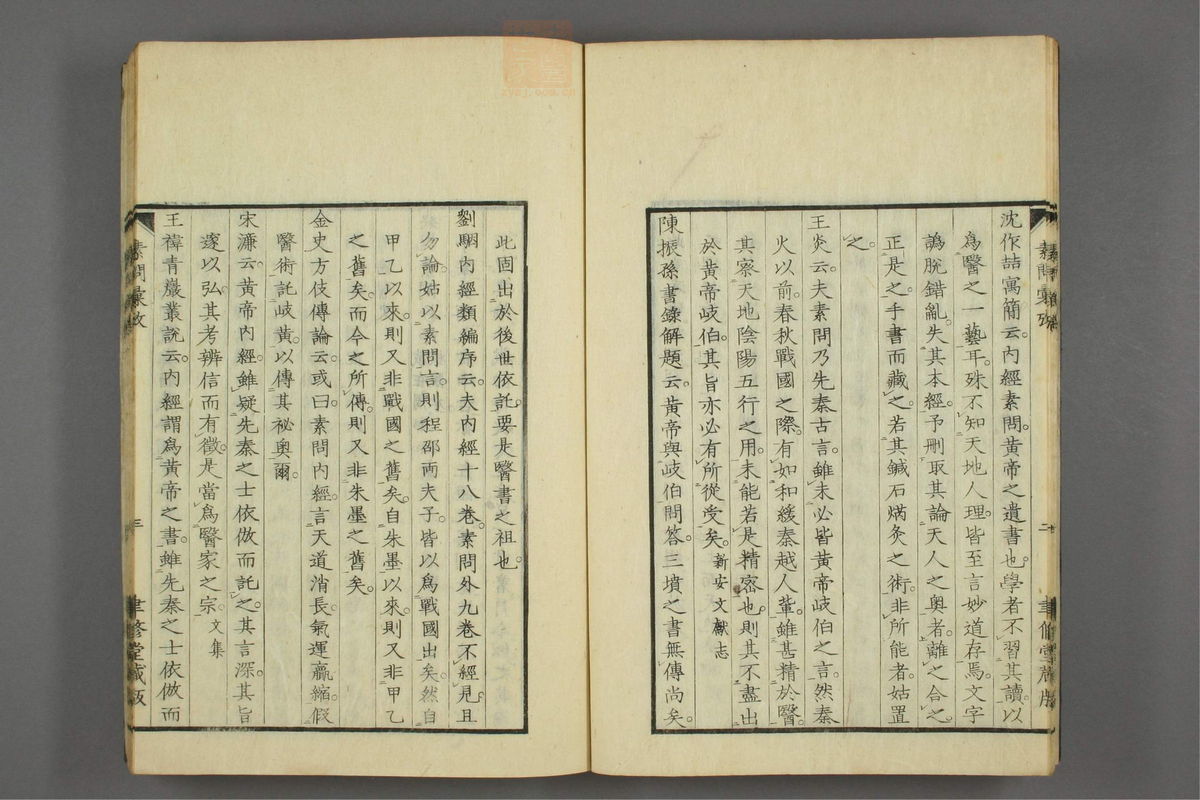 沈作喆寓簡云。內經素問。黃帝之遺書也。學者不習其讀。以
爲醫之一藝耳。殊不知天地人理。皆至言妙道存焉。文字
譌脫錯亂。失其本經。予刪取其論天人之奧者。離之合之。
正是之。手書而藏之。若其鍼石焫灸之術。非所能者。姑置
之。
王炎云。夫素問乃先秦古言。雖未必皆黃帝岐伯之言。然秦
火以前。春秋戰國之際。有如和緩秦越人輩。雖甚精於醫。
其察天地陰陽五行之用。未能若是精密也。則其不盡出
於黃帝岐伯。其旨亦必有所從受矣。新安文獻志
陳振孫書錄解題云。黃帝與岐伯問答。三墳之書無傳尚矣。
二
聿修堂藏版
此固出於後世依託。要是醫書之祖也。
劉駰內經類編序云。夫內經十八卷。素問外九卷不經見。且
勿論。姑以素問言。則程邵兩夫子。皆以爲戰國出矣。然自
甲乙以來。則又非戰國之舊矣。自朱墨以來。則又非甲乙
之舊矣。而今之所傳。則又非朱墨之舊矣。
金史方伎傳論云。或曰素問內經。言天道消長。氣運贏縮。假
醫術。託岐黃。以傳其祕奧爾。
宋濂云。黃帝內經。雖疑先秦之士依倣而託之。其言深。其旨
邃以弘。其考辨信而有徵。是當爲醫家之宗。文集
王褘青巖叢說云。內經謂爲黃帝之書。雖先秦之士依倣而
三